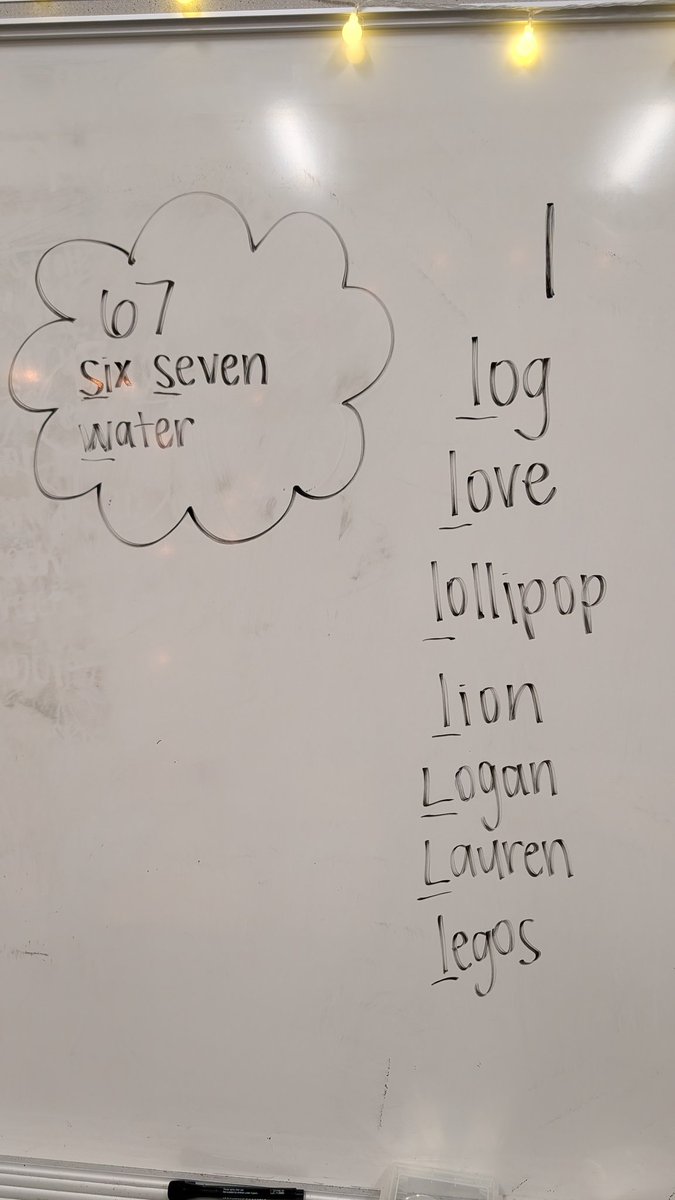 67
six seven
water
l
log
love
lollipop
lion
Logan
Lauren
legos